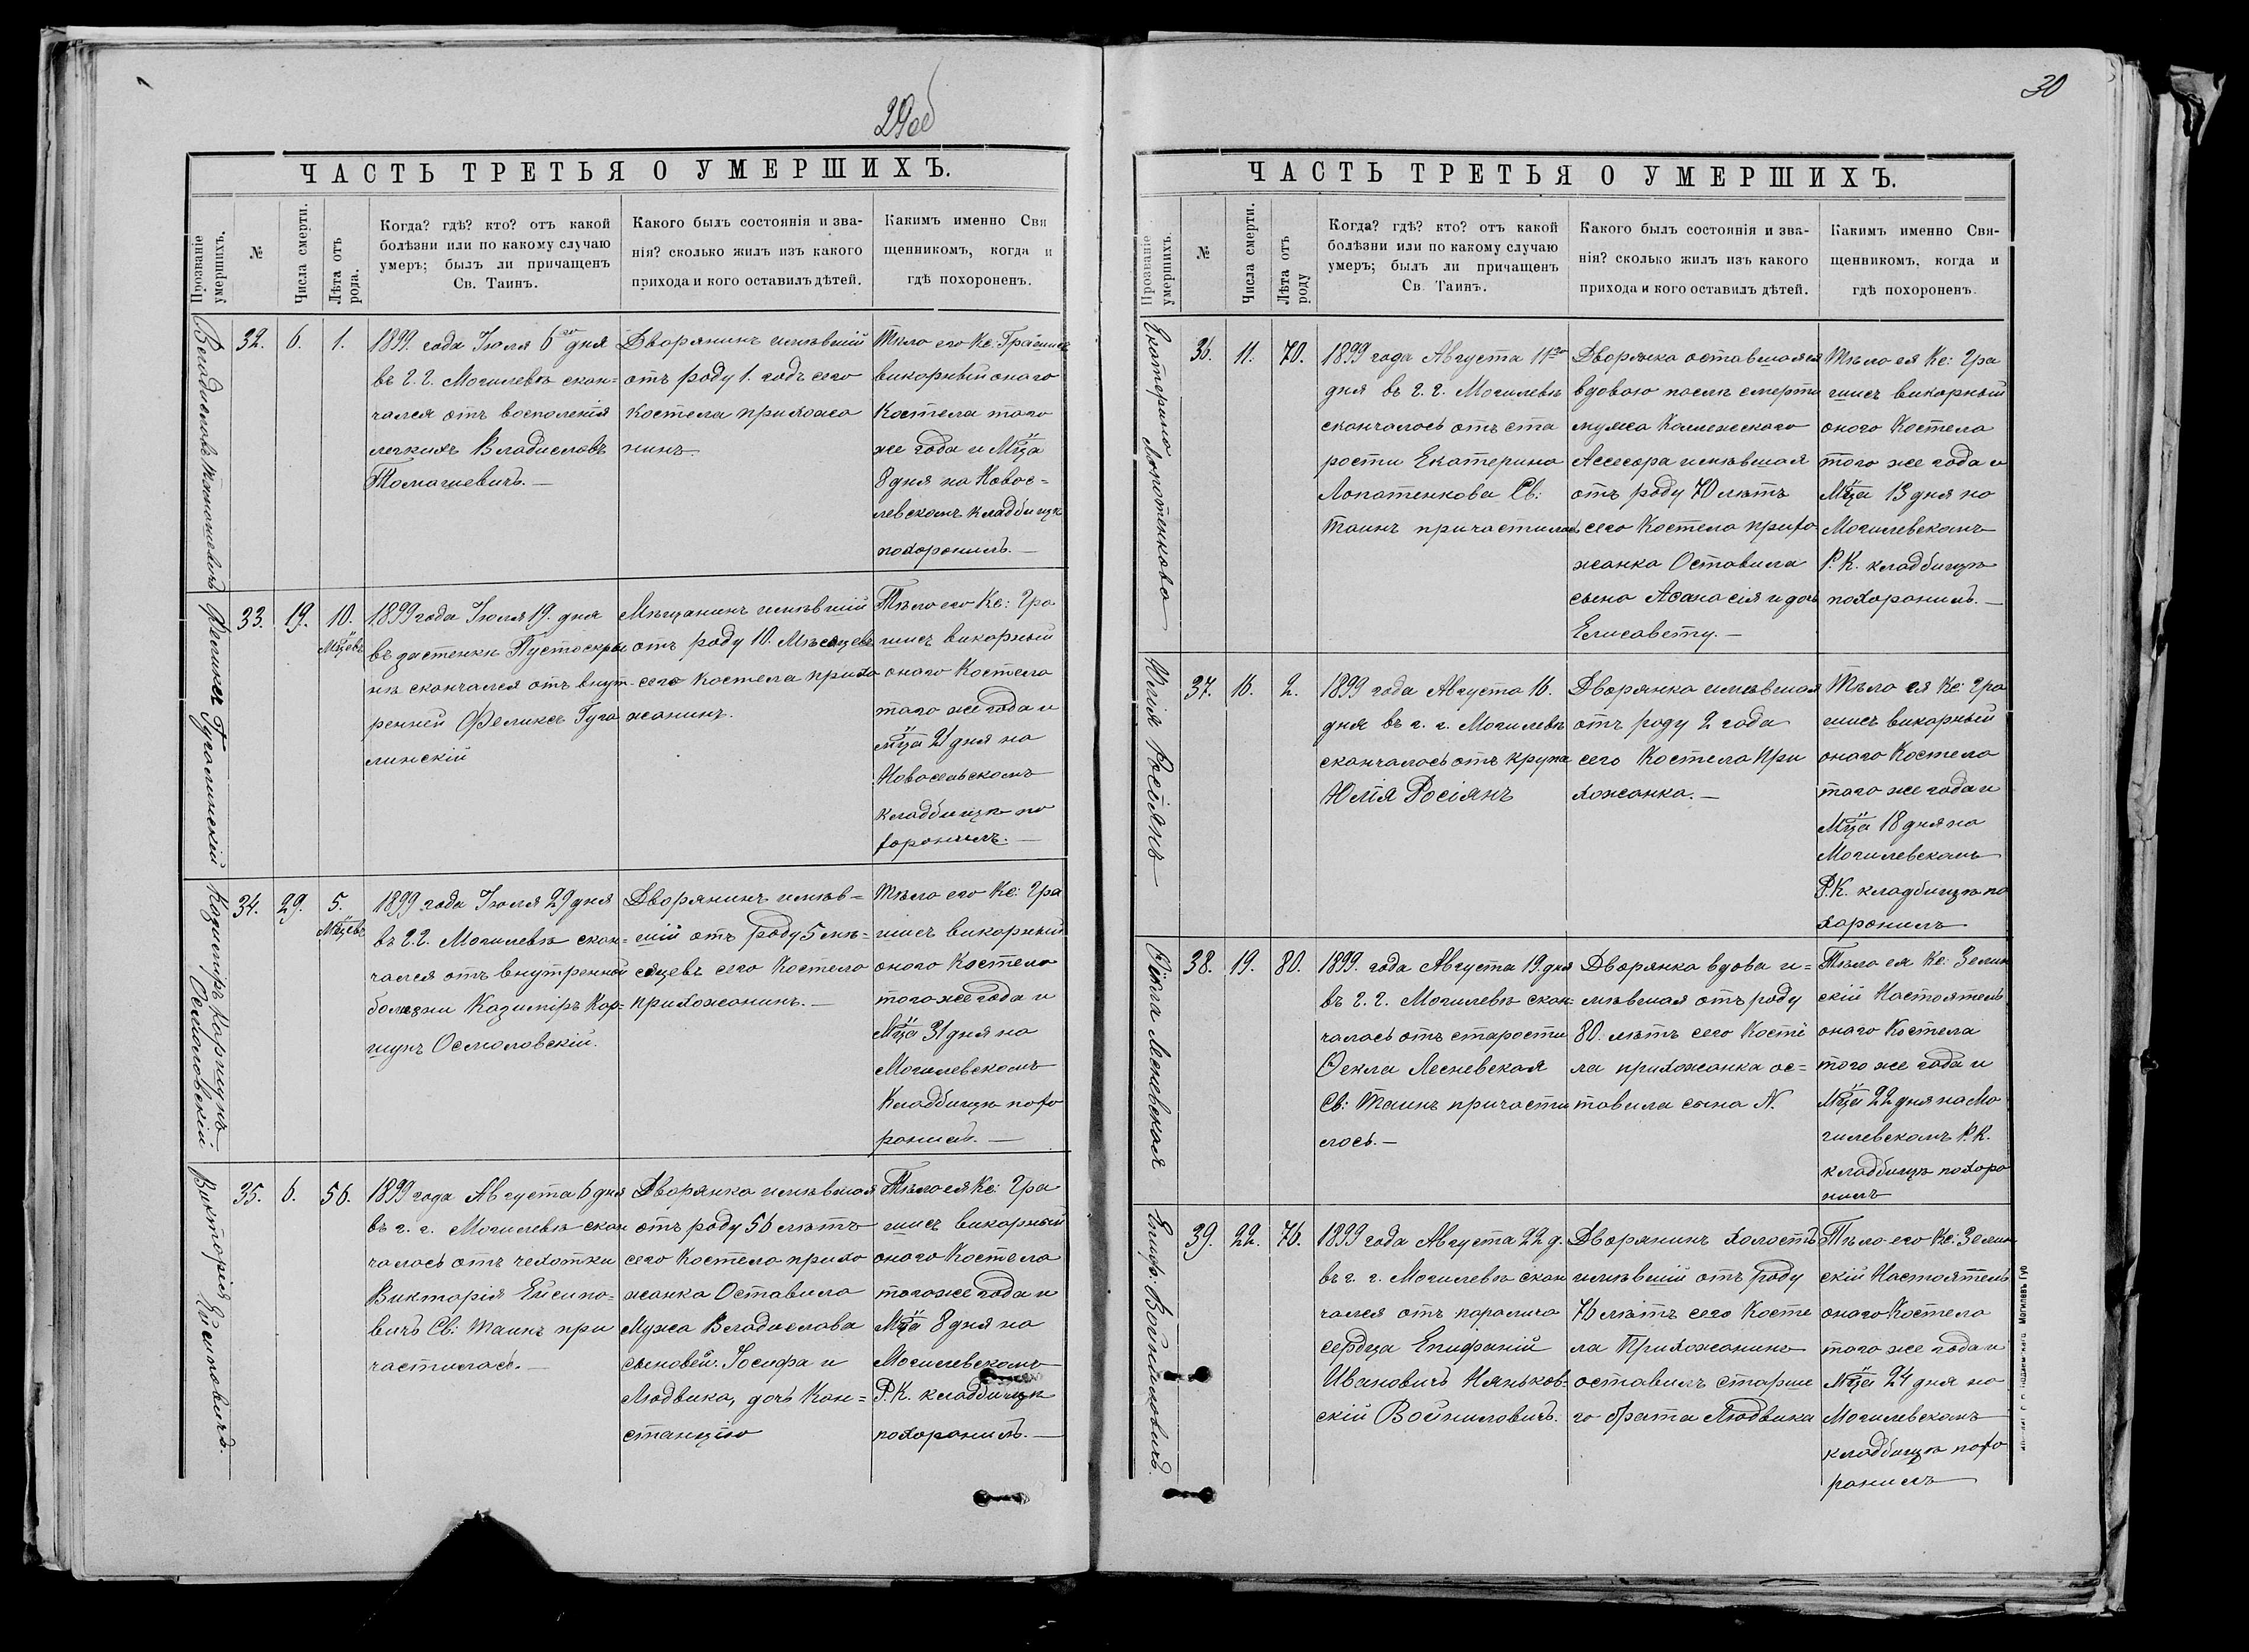 29об
ЧАСТЬ ТРЕТЬЯ О УМЕРШИХЪ.
Прозваніе умершихъ.
№
Числа смерти.
Лѣта отъ рода.
Когда? гдѣ? кто? отъ какой
болѣзни или по какому случаю
умеръ; былъ ли причащенъ
Св. Таинъ.
Какого былъ состоянія и зва-
нія? сколько жилъ изъ какого
прихода и кого оставилъ дѣтей.
Каким­ъ именно Свя
щенникомъ, когда и
гдѣ похороненъ.
Владиславъ Томашевичъ
32.
6.
1.
1899. года Іюля 6го дня
въ г. г. Могилевѣ скон=
чался отъ восполенія
легкихъ Владиславъ
Томашевичъ. —
Дворянинъ имѣвшій
отъ роду 1. годъ сего
Костела прихожа
нинъ.
Тѣло его Кс: Грашисъ
викарный онаго
Костела того
же года и Мца
8 дня на Новос=
левскомъ кладбищѣ
похоронилъ. —
Феликсъ Гугалинскій
33.
19.
10.
Мцевъ
1899 года Іюля 19. дня
въ застенкѣ Пустоскры
нѣ скончался отъ внут-
ренней Феликсъ Гуга
линскій
Мѣщанинъ имѣвшій
отъ роду 10. Мѣсяцевъ
сего Костела прихо
жанинъ.
Тѣло его Кс: Гра
шисъ викарный
онаго Костела
того же года и
мца 21 дня на
Новосельскомъ
кладбищѣ по
хоронилъ. —
Казиміръ Коршунъ
Осмоловскій
34.
29.
5.
Мцевъ
1899 года Іюля 29 дня
въ г. г. Могилевѣ скон=
чался отъ внутренной
болѣзни Казиміръ Кор=
шунъ Осмоловскій.
Дворянинъ имѣв=
шій отъ роду 5 мѣ=
сяцевъ сего Костела
прихожанинъ. —
Тѣло его Кс: Гра
шисъ викарный
онаго Костела
того же года и
Мца 31 дня на
Могилевскомъ
Кладбищѣ похо
ронилъ. —
Викторія Ейсимовичъ.
35.
6.
56.
1899 года Августа 6 дня
въ г. г. Могилевѣ скон
чалась отъ чехотки
Викторія Ейсимо=
вичъ Св: Таинъ при
частилась. —
Дворянка имѣвшая
отъ роду 56 лѣтъ
сего Костела прихо
жанка Оставила
Мужа Владислава
сыновей: Іосифа и
Людвика, дочь Кон=
станцію
Тѣло ея Кс: Гра
шисъ викарный
онаго Костела
того же года и
Мца 8 дня на
Могилевскомъ
Р. К. кладбищѣ
похоронилъ. —
30
ЧАСТЬ ТРЕТЬЯ О УМЕРШИХЪ.
Прозваніе умершихъ
№
Числа смерти.
Лѣта отъ роду
Когда? гдѣ? кто? отъ какой
болѣзни или по какому случаю
умеръ; былъ ли причащенъ
Св. Таинъ.
Какого былъ состоянія и зва-
нія? сколько жилъ изъ какого
прихода и кого оставилъ дѣтей.
Какимъ именно Свя-
щенникомъ, когда и
гдѣ похороненъ.
Екатерина Лопотенкова
36.
11.
70.
1899 года Августа 11го
дня въ г. г. Могилевѣ
скончалось отъ ста
рости Екатерина
Лопатенкова Св:
Таинъ причастилась
Дворянка оставшаяся
вдовою послѣ смерти
мужа Коллежского
Ассесора имѣвшая
отъ роду 70 лѣтъ
сего Костела прихо
жанка Оставила
сына Афанасія и дочь
Елисавету. —
Тѣло ея Кс: Гра
шисъ викарный
оного Костела
того же года и
Мца 13 дня на
Могилевскомъ
Р. К. кладбищѣ
похоронилъ. —
Юлія Росіянъ
37.
16.
2.
1899 года Августа 16.
дня въ г. г. Могилевѣ
скончалось отъ крупа
Юлія Росіянъ
Дворянка имѣвшая
отъ роду 2 года
сего Костела При
хожанка. —
Тѣло ея Кс: Гра
шисъ викарный
онаго Костела
того же года и
Мца 18 дня на
Могилевскомъ
Р. К. кладбищѣ по
хоронилъ
Ѳекла Лесневская
38.
19.
80.
1899. года Августа 19. дня
въ г. г. Могилевѣ скон=
чалась отъ старости
Ѳекла Лесневская
Св: Таинъ причасти
лось. —
Дворянка вдова и=
мѣвшая отъ роду
80. лѣтъ сего Косте
ла прихожанка ос=
тавила сына N.
Тѣло ея Кс: Зелин
скій Настоятель
оного Костела
того же года и
Мца 22 дня на Мо
гилевскомъ Р. К.
кладбищѣ похоро
нилъ
Епиф. Войниловичъ.
39.
22.
76.
1899 года Августа 22 д.
въ г. г. Могилевѣ скон
чался отъ паралича
сердца Епифаній
Ивановичъ Няньков=
скій Войниловичъ.
Дворянинъ холостъ
имѣвшій отъ роду
76 лѣтъ сего Косте
ла Прихожанинъ
оставилъ старше
го брата Людвика
Тѣло его Кс: Зелин
скій Настоятель
оного Костела
того же года и
Мца 24 дня на
Могилевскомъ
кладбищѣ похо
ронилъ
Могилевъ Губ